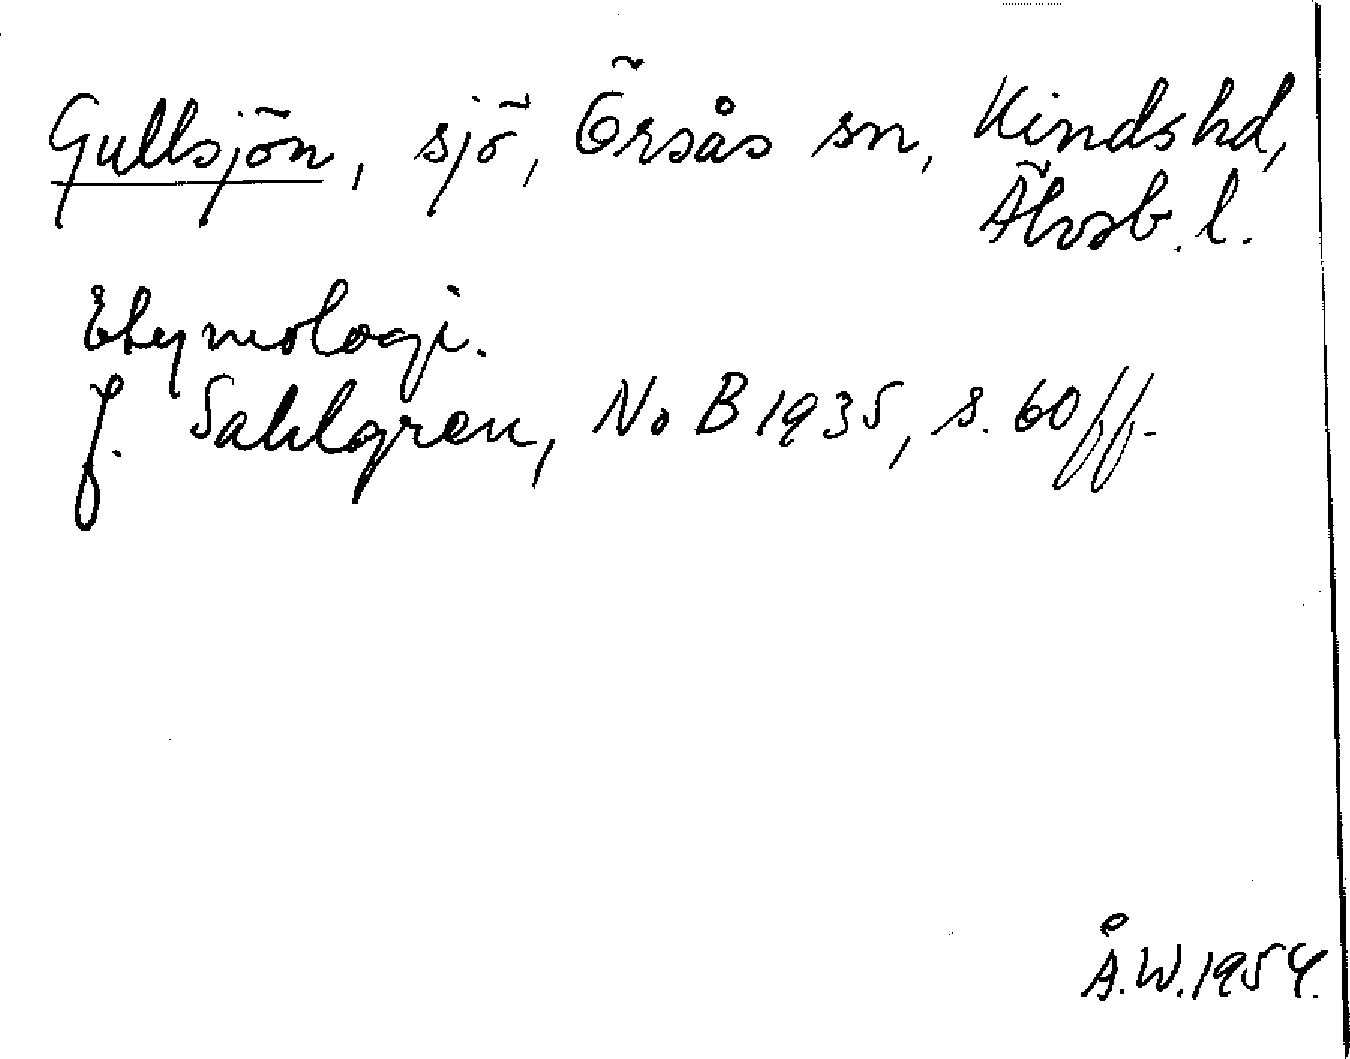 Gullsjön, sjö, Örsås sn, Kinds hd,
Älvsb. l.
Etymologi.
J. Sahlgren, NoB 1935, s. 60 ff.
Å.W. 1954.